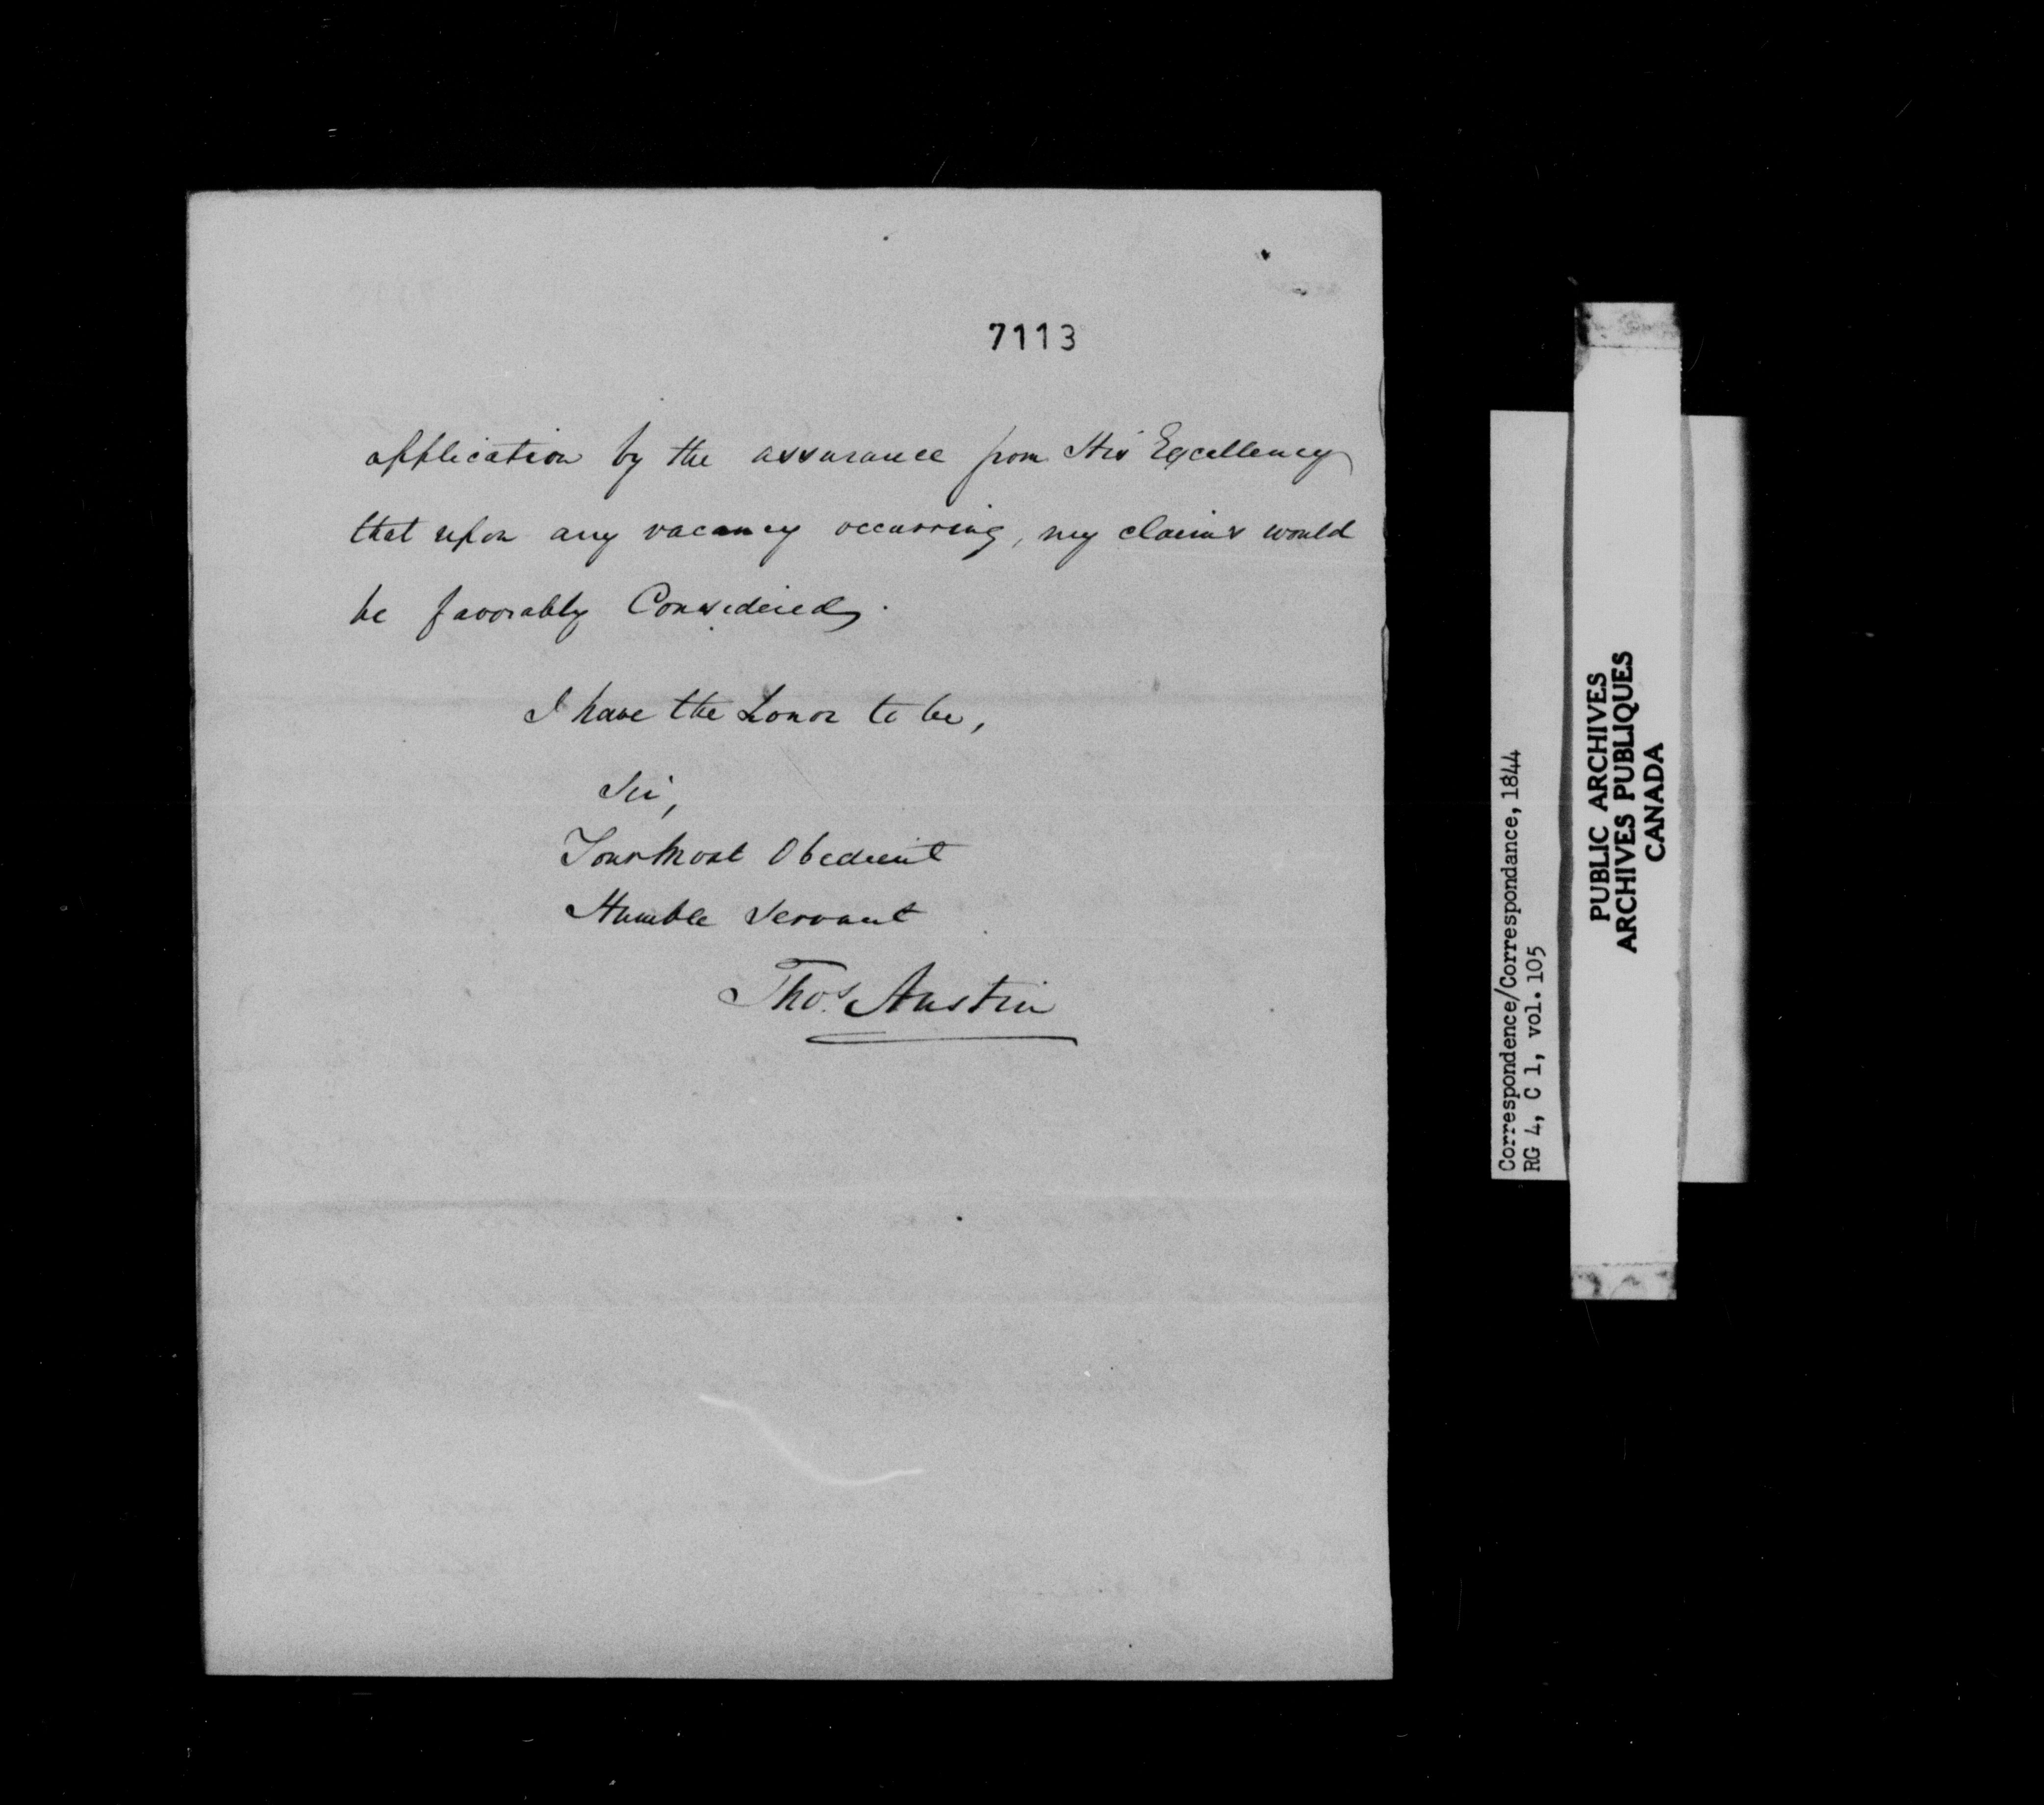 7113
application by the assurance from His Excellency
that upon any vacancy occurring, my claims would
be favorably Considered.
I have the honor to be,
Sir,
Your Most Obedient
Humble Servant
Thos. Austin
Correspondence/Correspondance, 1844
RG 4, C 1, vol. 105
PUBLIC ARCHIVES
ARCHIVES PUBLIQUES
CANADA